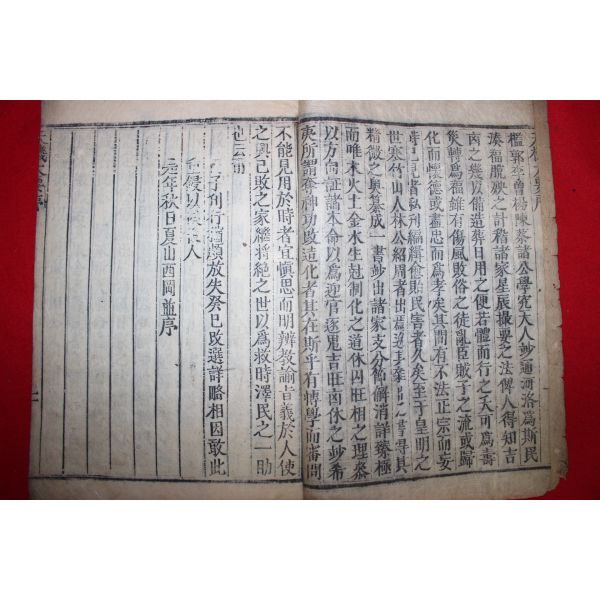 楹郭李曾楊陳蔡諸公學究天人妙通河洛爲斯民
湊福臆族之計稽諸家星辰撮要之法俾人得知吉
凶之幾以備造葬日用之便若體而行之夭可爲壽
災轉爲福雖有傷風敗俗之徒亂臣賊子之流或歸
化而懷德或盡忠而爲孝矣其間有不法正宗而妄
時己者私刊編緝愈貽民害者久矣至于皇明之
世寒竹山人林公紹周者出
精微之奧纂成一書妙出諸家支分節解消詳臻極
而唯木火土金水生剋制化之道休囚旺相之理叅
以方向証諸本命以爲迎官逐鬼吉旺凶休之妙希
庚所謂奪神功改造化者其在斯乎有轉學而審問
不能見用於時者宜愼思而明辨敎諭旨義於人使
之興已敗之家繼將絶之世以爲救時澤民之一助
也云爾
字刊行頗放失癸巳改選詳略相因敢此
重鋟以人
元年秋日夏山西岡並序